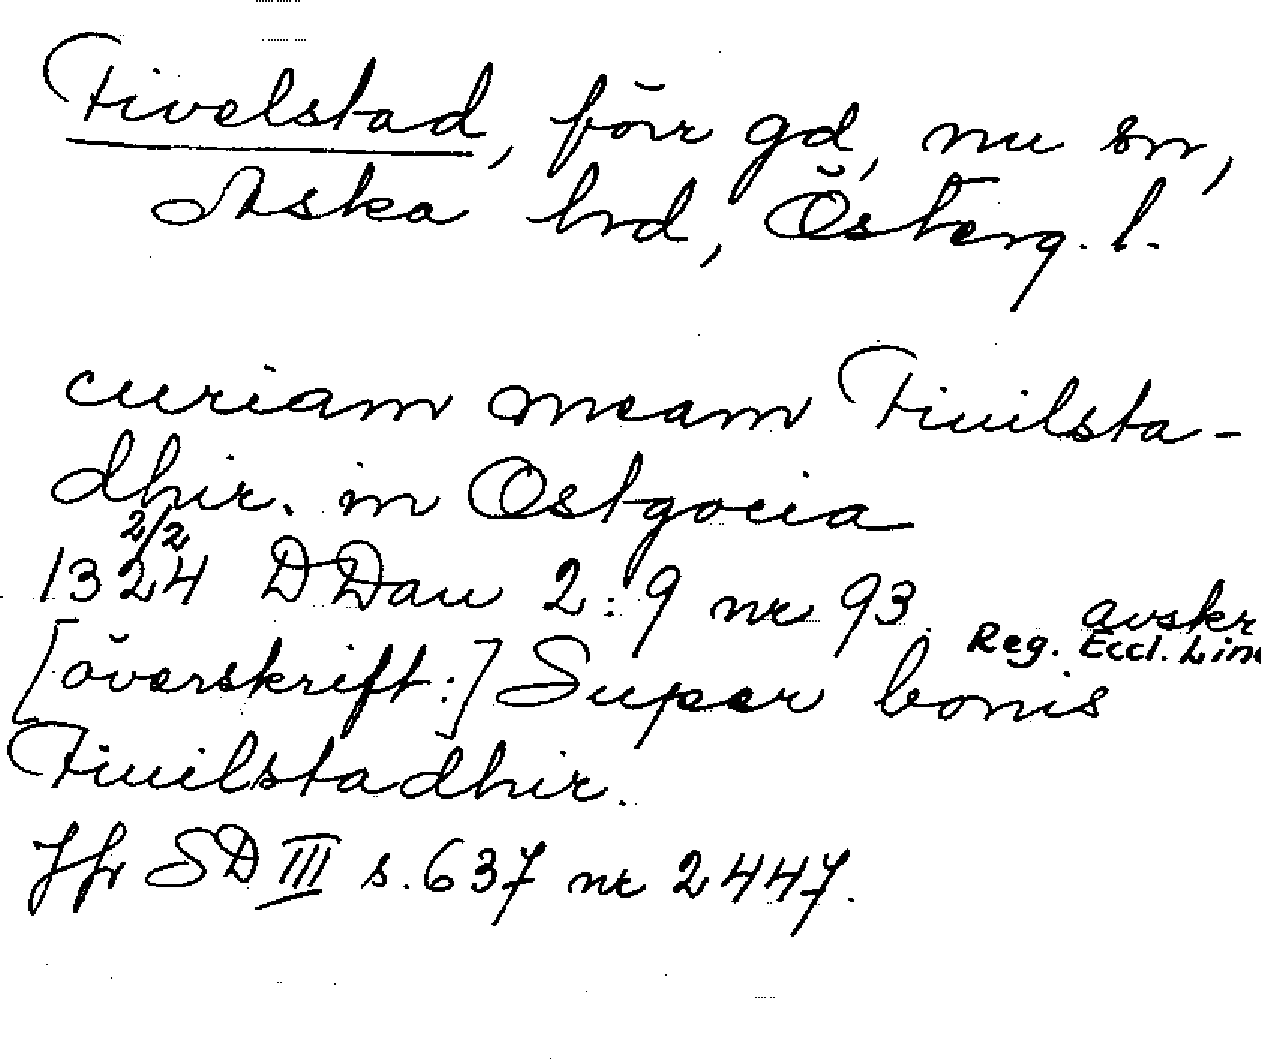 Fivelstad, förr gd, nu sn,
Aska hrd, Österg. l.
curiam meam Fiuilsta-
dhir. in Ostgocia
2/2
1324 DDan 2:9 nr 93. avskr
Reg. Eccl. Linc
[överskrift:] Super bonis
Fiuilstadhir.
Jfr SD III s. 637 nr 2447.